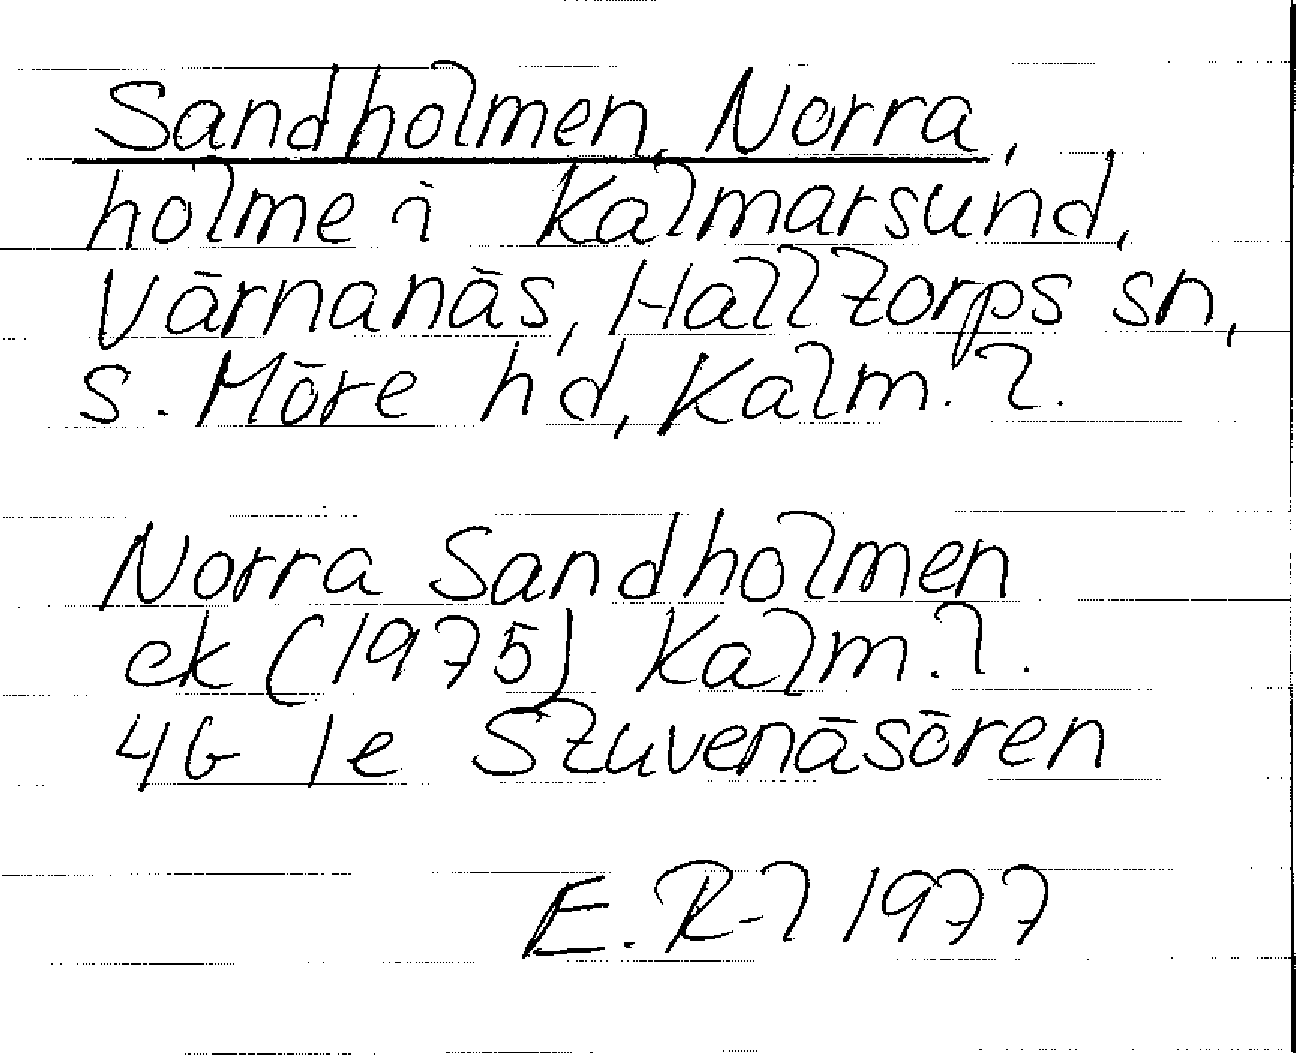 Sandholmen, Norra,
holme i Kalmarsund,
Värnanäs, Halltorps sn,
S. Möre hd, Kalm. l.
Norra Sandholmen
ek (1975) Kalm. l.
4G 1e Stuvenäsören
E. R-l 1977